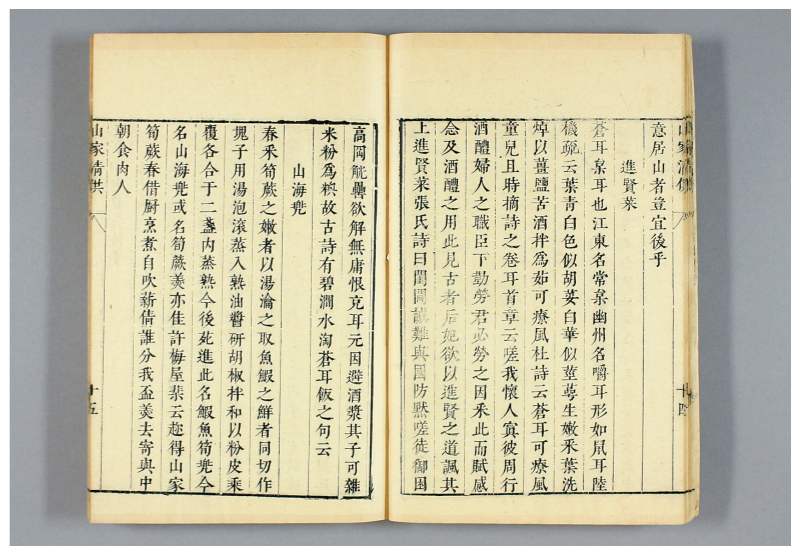 意居山者豈宜後乎
進賢菜
蒼耳枲耳也江東名常枲幽州名嚼耳形如鼠耳陸
機疏云葉青白色似胡荽白華似莖蔓生嫩采葉洗
焯以薑鹽苦酒拌為茹可療風杜詩云蒼耳可療風
童兒且時摘詩之卷耳首章云嗟我懷人寘彼周行
酒醴婦人之職臣下勤勞君必勞之因釆此而賦感
念及酒醴之用此見古者后妃欲以進賢之道諷其
上進賢菜張氏詩曰閨閫誠難與國防默嗟徒御困
山家清供
十四
高岡觥罍欲解無庸恨充耳元因避酒漿其子可雜
米粉為糗故古詩有碧澗水淘蒼耳飯之句云
山海兠
春釆笋蕨之嫩者以湯瀹之取魚鰕之鮮者同切作
塊子用湯泡滾蒸入熟油醬研胡椒拌和以粉皮乘
覆各合于二盞內蒸熟今後苑進此名鰕魚笋兠今
名山海兠或名笋蕨羹亦佳許梅屋棐云趂得山家
笋蕨春借厨烹煮自吹薪倩誰分我盃羹去寄與中
朝食肉人
山家清供
十五